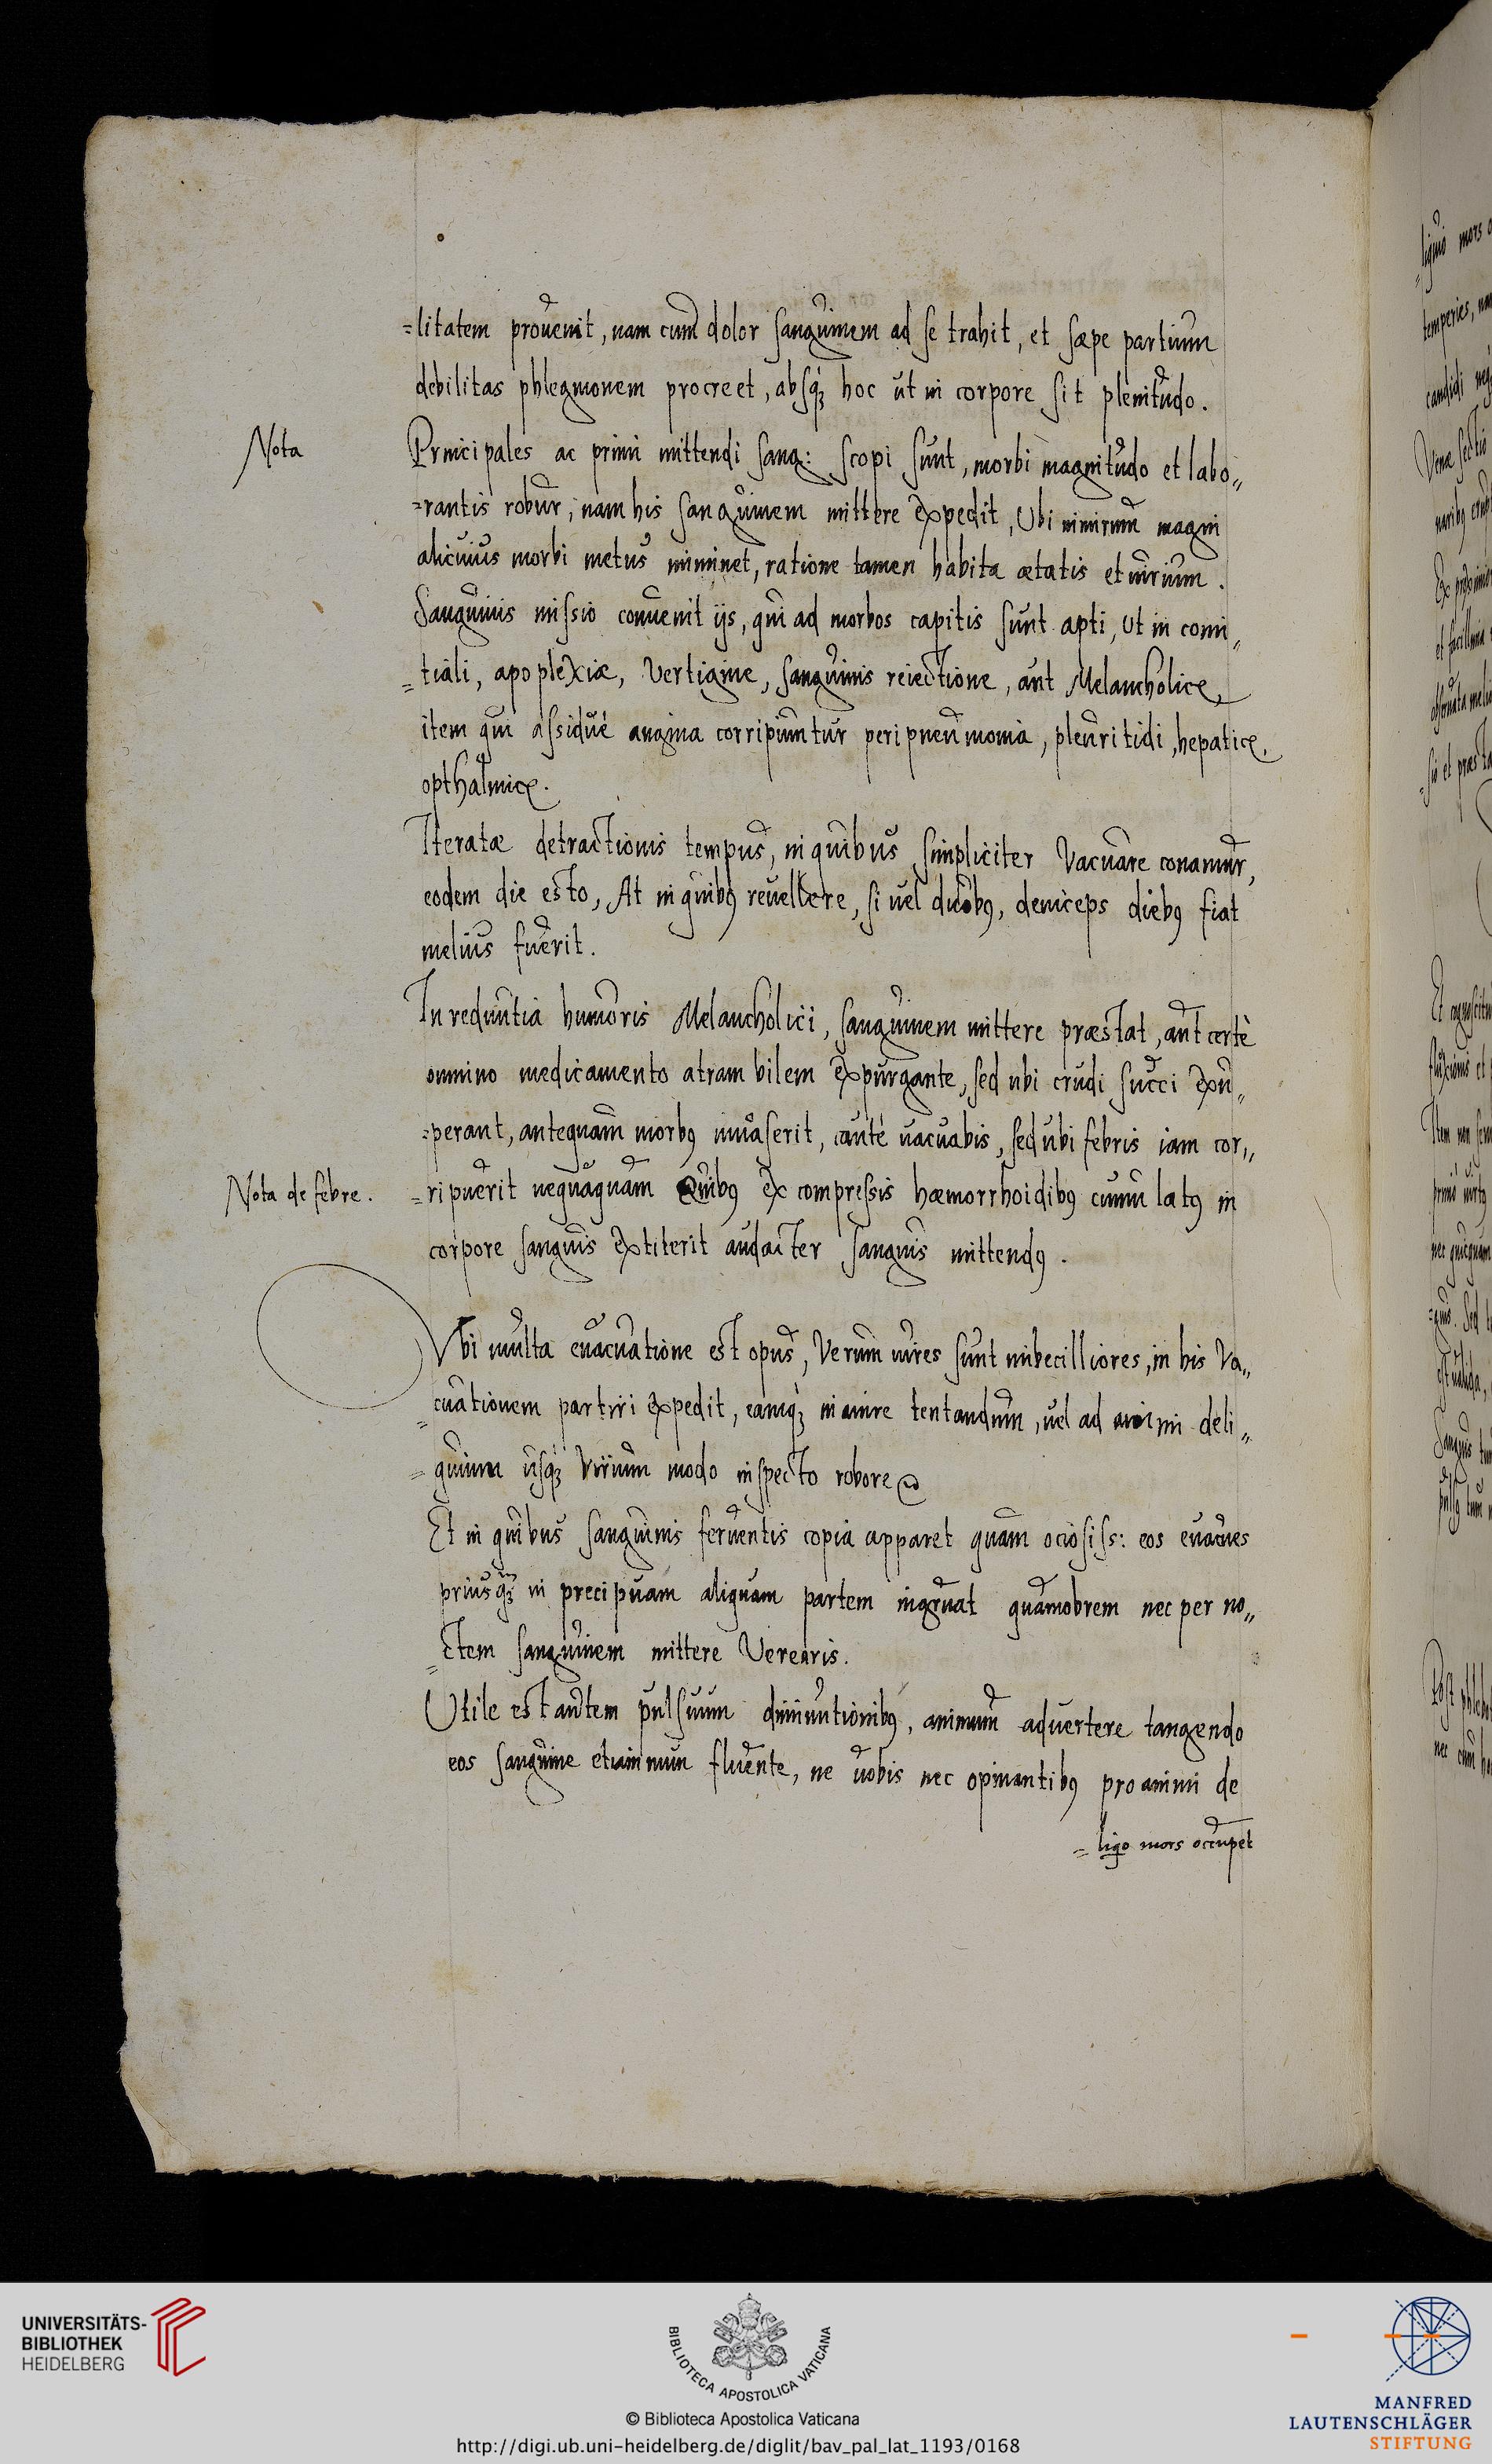 =litatem prouenit, nam cum dolor sanguinem ad se trahit, et sæpe partium
debilitas phlegmonem procreet, absq; hoc ut in corpore sit plenitudo.
Nota
Principales ac primi mittendi sang: scopi sunt, morbi magnitudo et labo„
=rantis robur, nam his sanguinem mittere expedit, Ubi nimirum magni
alicuius morbi metus imminet, ratione tamen habita ætatis et uirium.
Sanguinis missio conuenit ijs, qui ad morbos capitis sunt apti, ut in comi„
=tiali, apoplexiæ, Vertigine, sanguinis reiectione, aut Melancholicę
item qui assiduè angina corripiuntur peripneumonia, pleuritidi, hepaticę,
opthalmicę.
Iteratæ detractionis tempus, in quibus simpliciter vacuare conamur,
eodem die esto, At in quibꝰ reuellere, si uel duobꝰ, deinceps diebꝰ fiat
melius fuerit.
In reduntia humoris Melancholici, sanguinem mittere præstat, aut certè
omnino medicamento atram bilem expurgante, sed ubi crudi succi exu„
=perant, antequam morbꝰ inuaserit, cautè uacuabis, sed ubi febris iam cor„
Nota de febre.
=ripuerit nequaquam Quibꝰ ex compressis hæmorrhoidibꝰ cumulatꝰ in
corpore sanguis extiterit audacter sanguis mittendꝰ.
Vbi multa euacuatione est opus, Verum uires sunt imbecilliores, in his Va„
=cuationem partiri expedit, eamq; iniamire tentandum, uel ad animi deli„
=quium usq; Virium modo inspecto robore
Et in quibus sanguinis feruentis copia apparet quam ociosiss: eos euacues
priusq; in precipuam aliquam partem ingruat quamobrem nec per no„
=ctem sanguinem mittere Verearis.
Utile est autem pulsuum diminutionibꝰ, animum aduertere tangendo
eos sanguine etiamnun fluente, ne uobis nec opinantibꝰ pro animi de
=liqo mors occupet
UNIVERSITÄTS-
BIBLIOTHEK
HEIDELBERG
BIBLIOTECA APOSTOLICA VATICANA
© Biblioteca Apostolica Vaticana
http://digi.ub.uni-heidelberg.de/diglit/bav_pal_lat_1193/0168
MANFRED
LAUTENSCHLÄGER
STIFTUNG